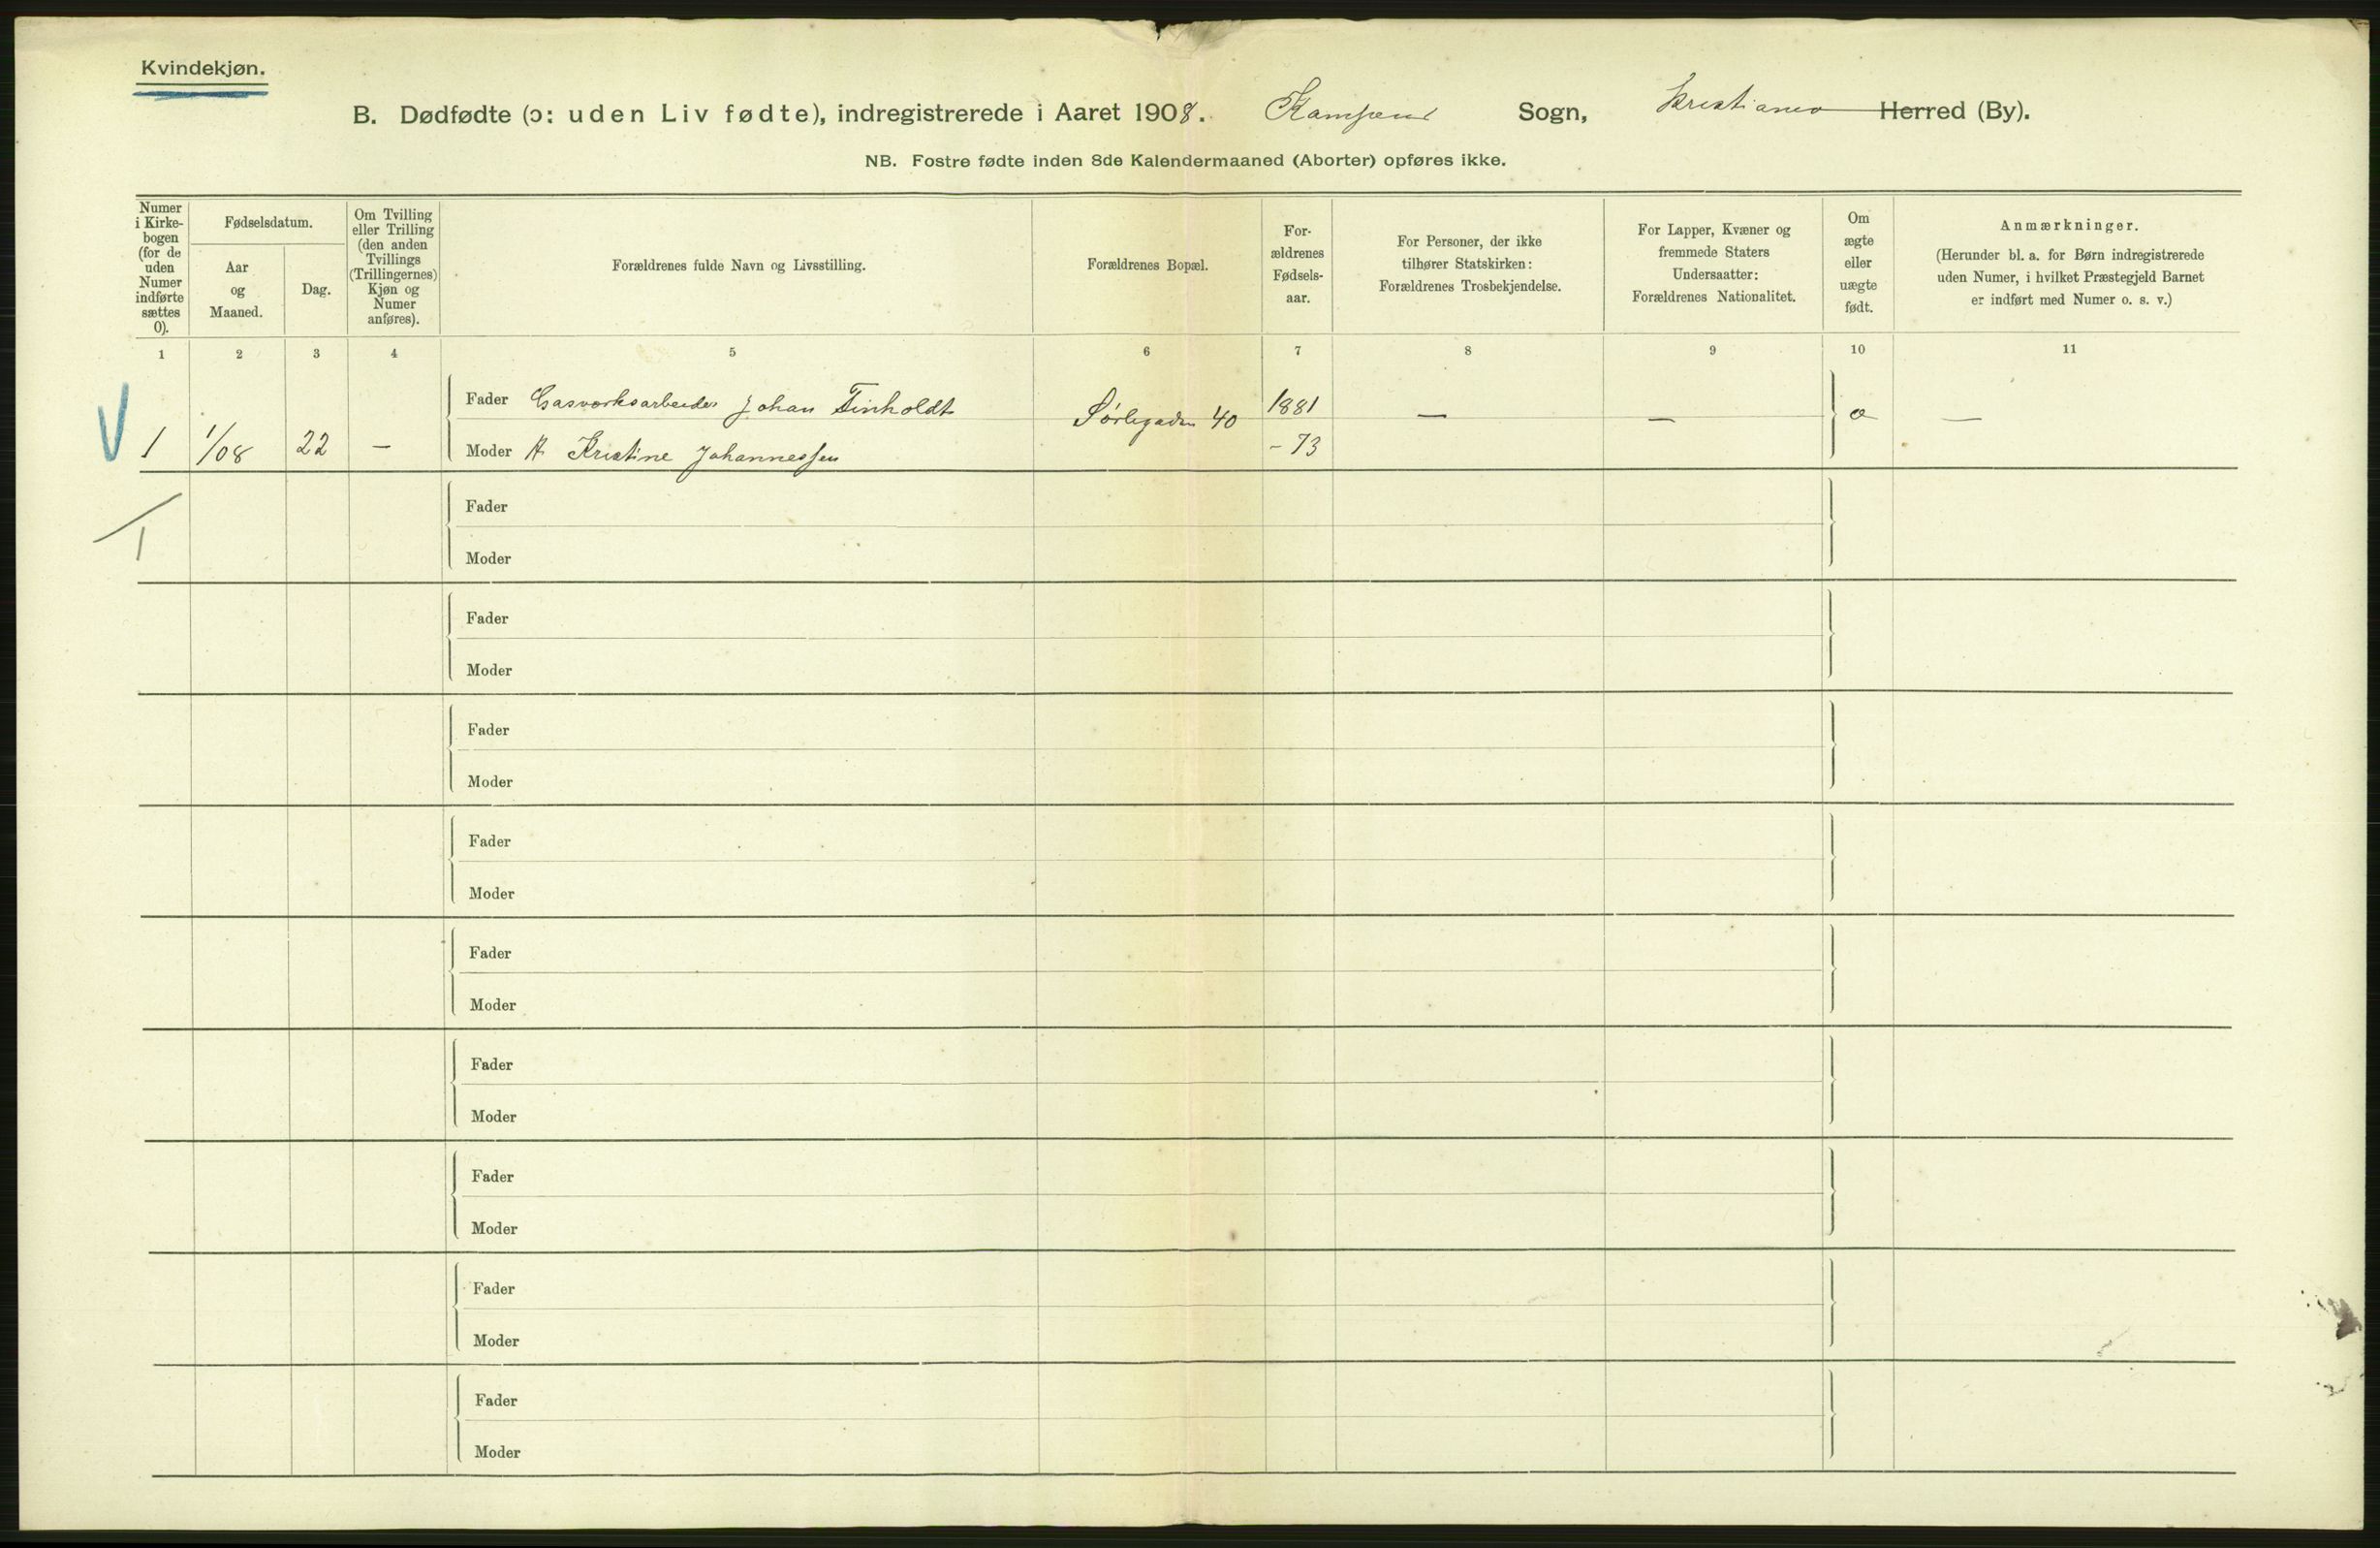 Kvindekjøn.
B. Dødfødte (ɔ: uden Liv fødte), indregistrerede i Aaret 1908. Kampens Sogn, Kristiania Herred (By).
NB. Fostre fødte inden 8de Kalendermaaned (Aborter) opføres ikke.
Numer i Kirke-
bogen
(for de
uden
Numer
indførte
sættes
0).
Fødselsdatum.
Aar
og
Maaned.
Dag.
Om Tvilling
eller Trilling
(den anden
Tvillings
(Trillingernes)
Kjøn og
Numer
anføres).
Forældrenes fulde Navn og Livsstilling.
Forældrenes Bopæl.
For-
ældrenes
Fødsels-
aar.
For Personer, der ikke
tilhører Statskirken:
Forældrenes Trosbekjendelse.
For Lapper, Kvæner og
fremmede Staters
Undersaatter:
Forældrenes Nationalitet.
Om
ægte
eller
uægte
født.
Anmærkninger.
(Herunder bl. a. for Børn indregistrerede
uden Numer, i hvilket Præstegjeld Barnet
er indført med Numer o. s. v.)
1 2 3 4 5 6 7 8 9 10 11
Fader Gasværksarbeider Johan Finholdt Sørligaden 40 1881 — — —
1 1/08 22 — Moder H. Kristine Johannessen - 73
1
Fader
Moder
Fader
Moder
Fader
Moder
Fader
Moder
Fader
Moder
Fader
Moder
Fader
Moder
Fader
Moder
Fader
Moder